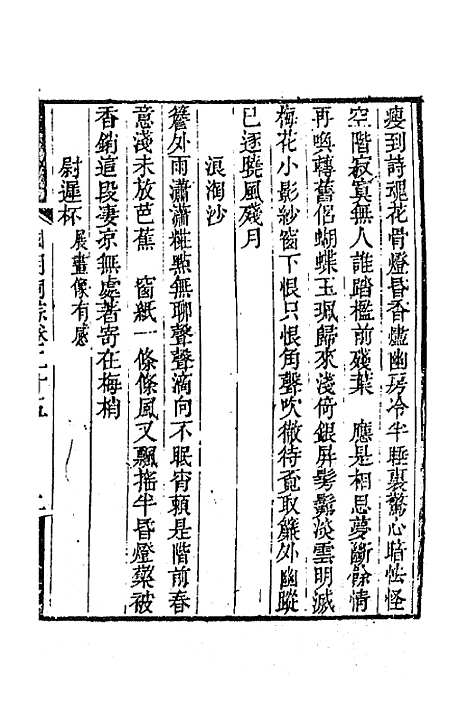 瘦到詩魂花骨燈昏香燼幽房冷半睡裏驚心暗怯怪
空階寂寞無人誰踏檻前殘葉　應是相思夢斷餘情
再喚轉舊侶蝴蝶玉珮歸來淺倚銀屏髣髴淡雲明滅
梅花小影紗窗下恨只恨角聲吹徹待覔取簾外幽蹤
已逐曉風殘月
浪淘沙
簷外雨瀟瀟糚點無聊聲聲滴向不眠宵賴是階前春
意淺未放芭蕉　窗紙一條條風又飄搖半昏燈蘂被
香銷這段凄凉無處著寄在梅梢
尉遲杯　展畫像有感
卷二十五